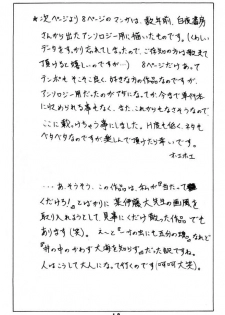 *次ページより8ページのマンガは、数年前、白夜書房
さんから出たアンソロジー用に描いたものです。(くわしい
データをすっかり忘れてしまったので、ご存知の方は教えて
頂けると嬉しいのですが…) 8ページだけあって
テンポもそこそこ良く、好きな方の作品なのですが、
アンソロジー用だったのがアダになってか、今まで単行本
に収められる事もなく、また、これからもなさそうなので、
ここに載っけちゃう事にしました。H度も低く、ネタも
ベタベタなのですが、楽しんで頂けたら幸いです。
ホエホエ
…あ、そうそう、この作品は、なんか『当たって
くだけろ!』とばかりに某伊藤大先生の画風を
取り入れようとして、見事にくだけ散った作品でも
あります(笑)。え〜と、一寸の虫にも五分の魂、なれど
『井の中のかわず大海を知らず』だった訳ですね。
人はこうして大人になって行くのです(呵呵大笑)。